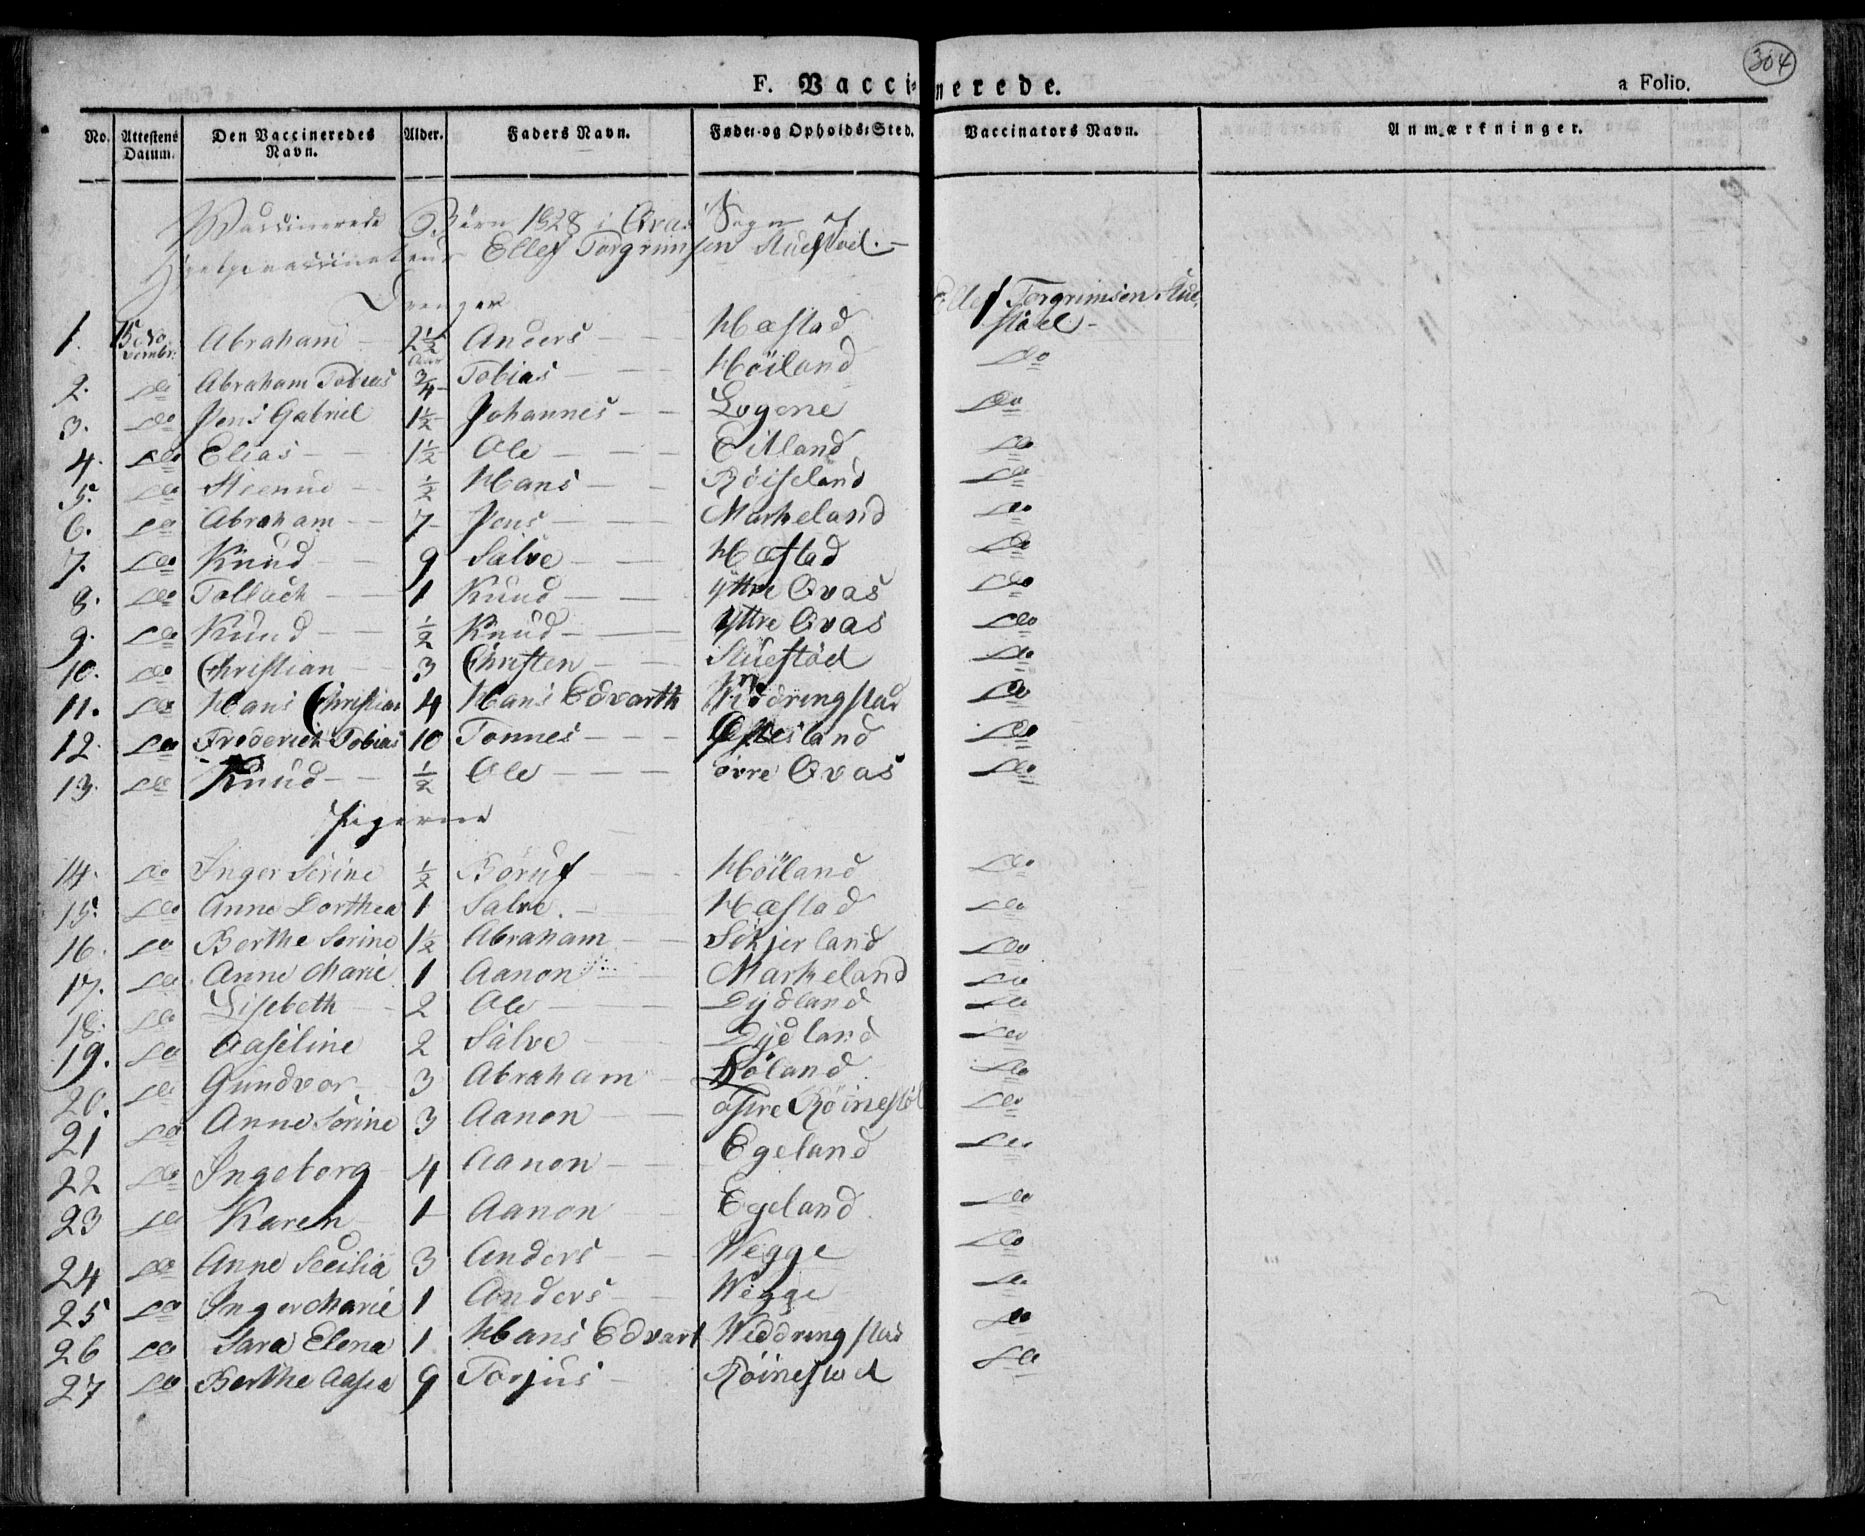 304
F. Vaccinerede.
a Folio.
No. Attestens Datum. Den Vaccineredes Navn. Alder. Faders Navn. Føde- og Opholds-Sted. Vaccinators Navn. Anmærkninger.
Vaccinerede Børn 1828 i Qvas Sogn af
Hjelpevaccinateur Ellef Torgrimsen Stuestöel. -
Drenger
1. 15de November Abraham 2½ Aar Anders - - Hæstad Ellef Torgrimsen Stuestöel -
2. do Abraham Tobias ¾ Tobias - - Höiland do
3. do Jens Gabriel 1½ Johannes - - Logene do
4. do Elias - - 1½ Ole - - - Eitland do
5. do Stienue - ½ Hans - - Röiseland do
6. do Abraham - - 7 Jens - - - Markeland do
7. do Knud - - 9 Salve - - Hæstad do
8. do Tallach - - 1 Knud - - - Yttre Qvas do
9. do Knud - - ½ Knud - - - Yttre Qvas do
10. do Christian - - 3 Christen - - Stuestöd do
11. do Hans Christian 4 Hans Edvarth Widdringstad do
12. do Frederich Tobias 10 Tonnes - - - do
13. do Knud - - ½ Ole - - - övre Qvas do
Pigerne
14. do Inger Serine ½ Böruf - - Höiland do
15. do Anne Dorthea 1 Salve. - Hæstad do
16. do Berthe Serine 1½ Abraham - - Sökjerland do
17. do Anne Marie 1 Aanon Markeland do
18. do Lisebeth - - 2 Ole - - Dydland do
19. do Aaseline 2 Salve - - Dydland do
20. do Gundvor 3 Abraham - Röland do
21 do Anne Serine 3 Aanon - - östre Röinestöl do
22 do Ingeborg 4 Aanon - - Egeland do
23 do Karen 1 Aanon - - Egeland do
24 do Anne Secilia 3 Anders - - Wegge do
25 do Inger Marie 1 Anders - - Wegge do
26 do Sara Elena 1 Hans Edvart Widdringstad do
27 do Berthe Aasea 9 Torjus - Röinestad do